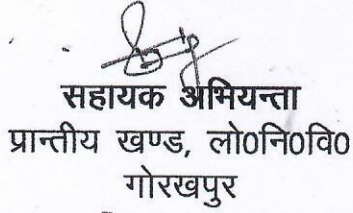 सहायक अभियन्ता
प्रान्तीय खण्ड, लो0नि0वि0
गोरखपुर